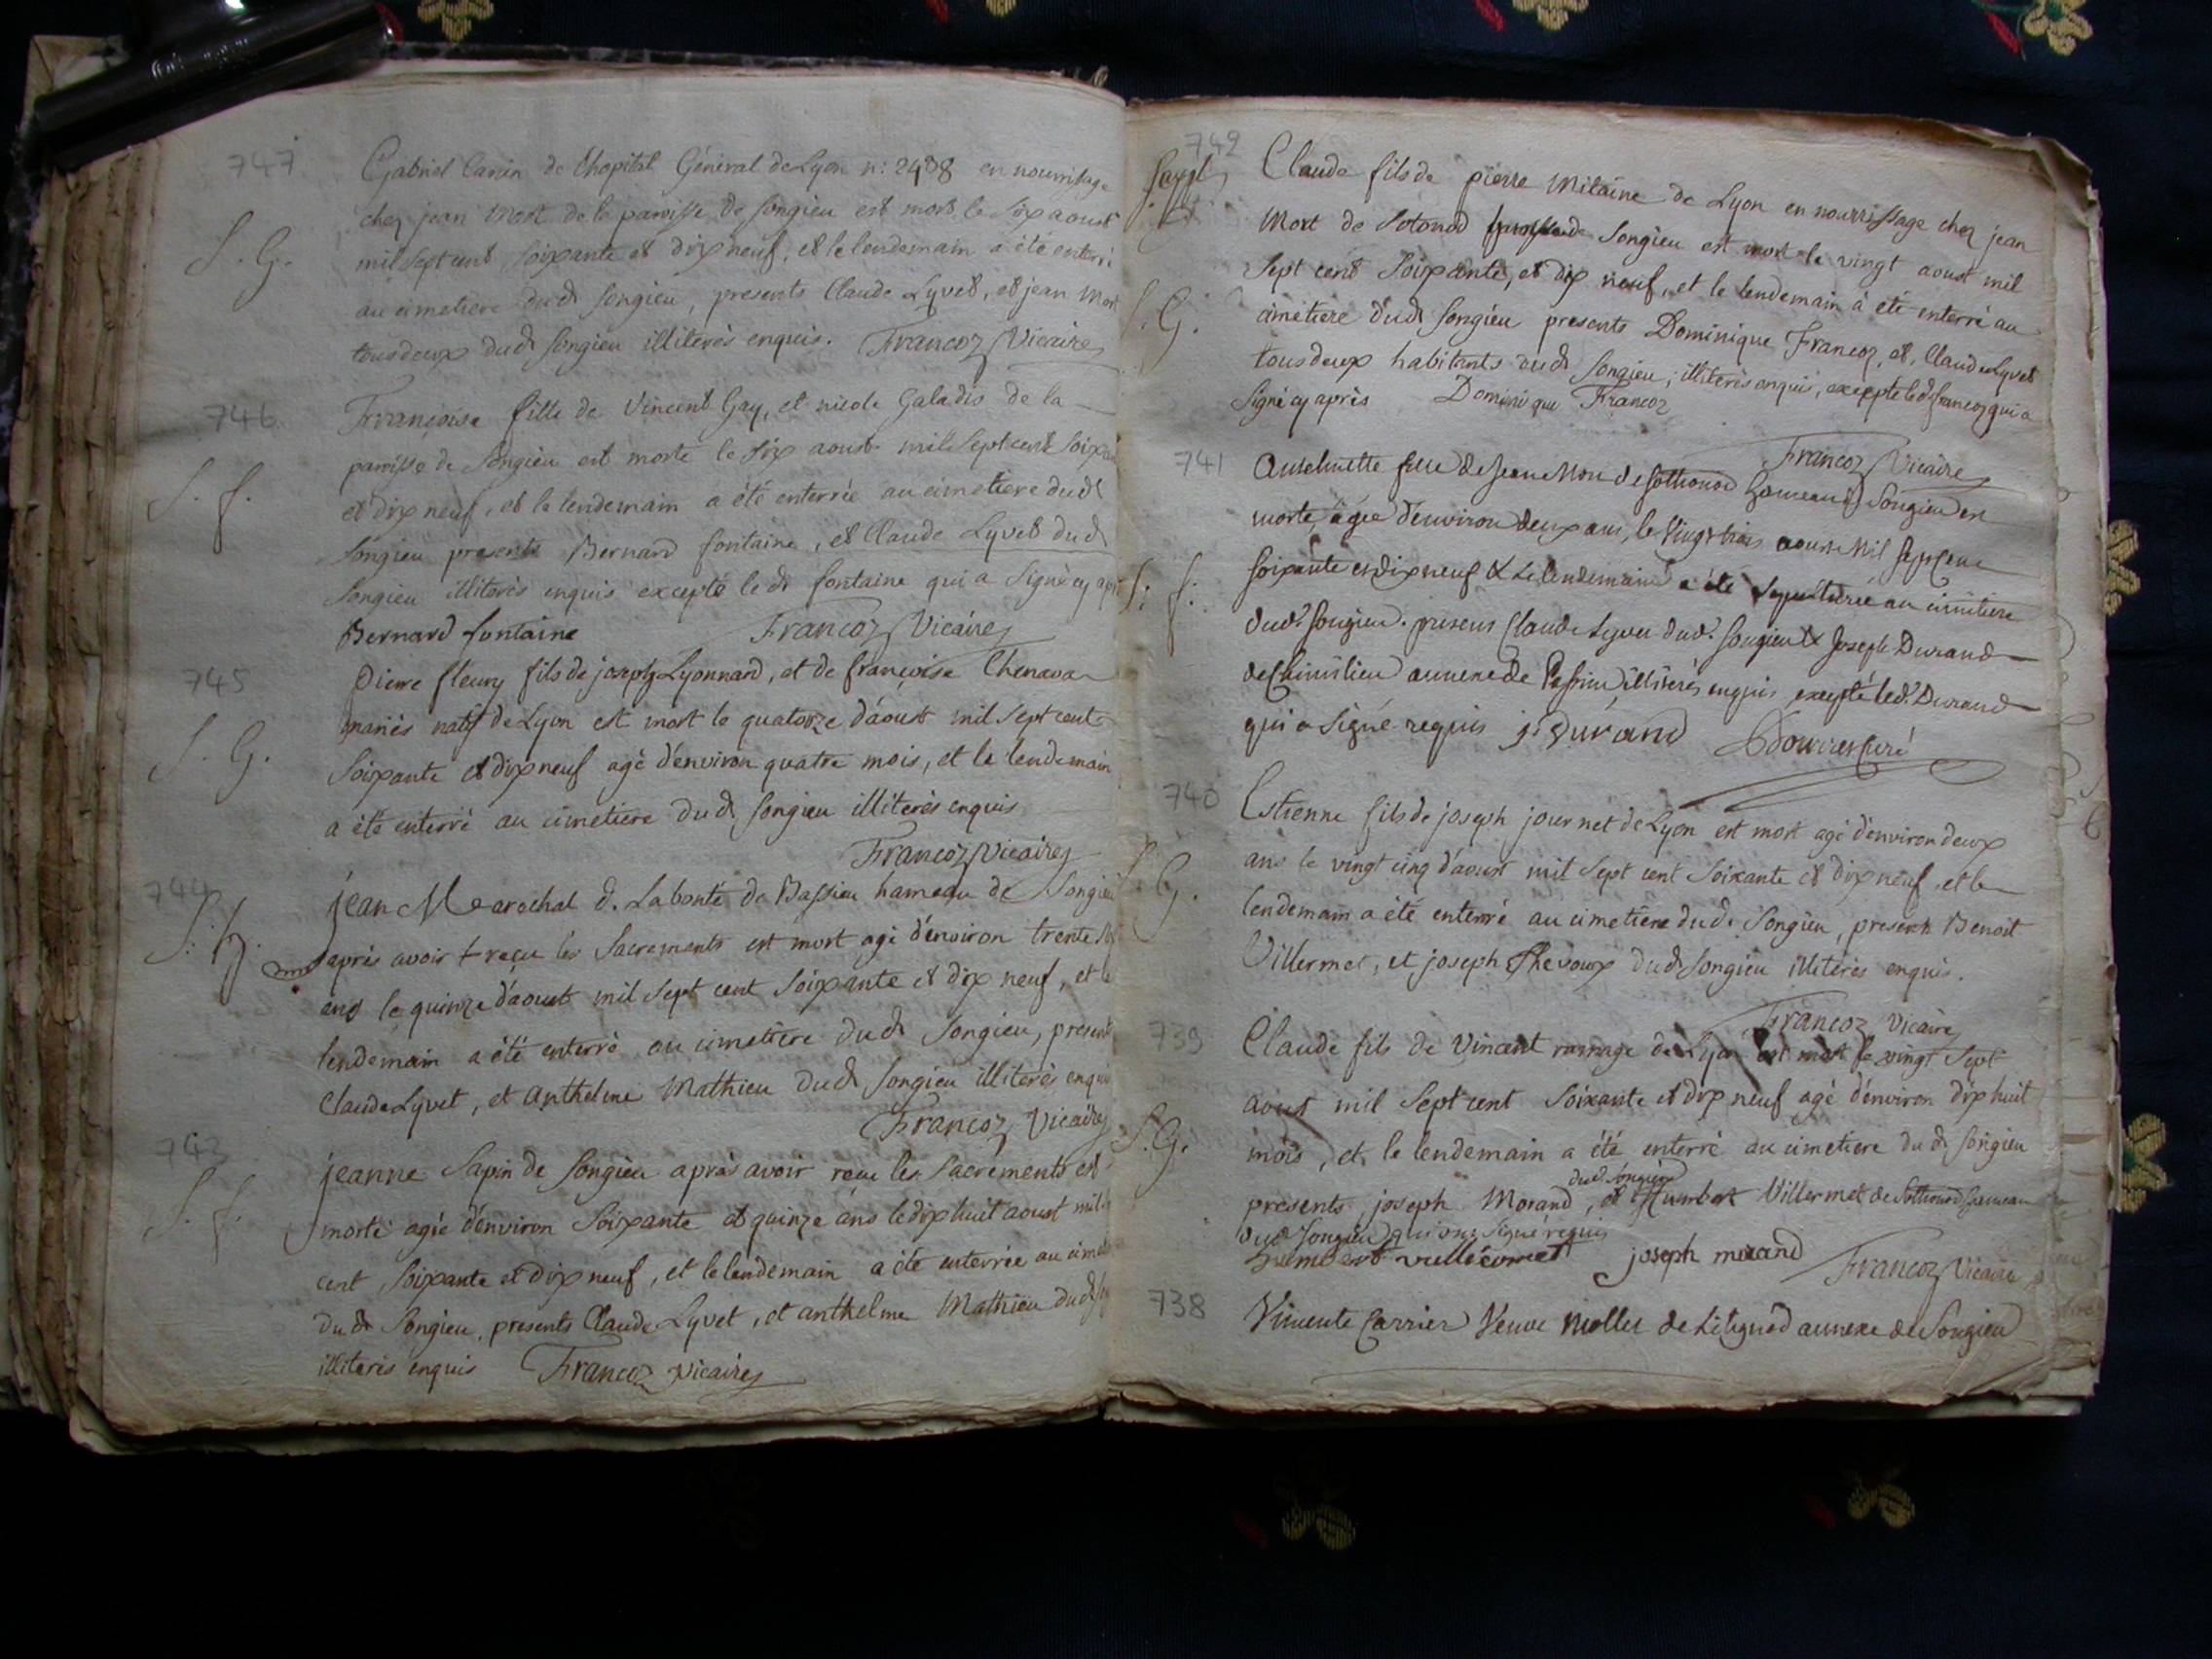 747
Gabriel Carin de l'hopital Géneral de Lyon n: 2438 en nourrisage
chez jean Mort de la paroisse de songieu est mort le six aoust
S. G.
mil sept cent soixante et dix neuf, et le lendemain a été enterré
au cimetiere dud songieu, presents Claude Lyvet, et jean Mort
tous deux dud songieu illiterés enquis. Francoz Vicaire
746
Françoise fille de Vincent Gay, et nicole Galadis de la
paroisse de Songieu est morte le six aoust mil sept cent soix
S. f.
et dix neuf, et le lendemain a été enterrée au cimetiere dud
songieu presents Bernard fontaine, et Claude Lyvet dud
songieu illiterés enquis excepté le d fontaine qui a signé cy
Bernard fontaine Francoz Vicaire
745
Pierre fleury fils de joseph Lyonnard, et de françoise Chenava
mariés natif de Lyon est mort le quatorze d'aoust mil sept cent
S. G.
soixante et dix neuf agé d'environ quatre mois, et le lendemain
a été enterré au cimetiere dud songieu illiterés enquis
Francoz Vicaire
744
jean Marechal d. Labonté de Bassieu hameau de Songieu
S. h.
après avoir + reçu les sacrements est mort agé d'environ trente
ans le quinze d'aoust mil sept cent soixante et dix neuf, et le
lendemain a été enterré au cimetiere dud songieu, present
Claude Lyvet, et Anthelme Mathieu dud songieu illiterés enquis
Francoz Vicaire
743
jeanne Sapin de songieu après avoir reçu les sacrements est
S. f.
morte agée d'environ soixante et quinze ans le dix huit aoust mil
cent soixante et dix neuf, et le lendemain a été enterrée au
dud Songieu, presents Claude Lyvet, et anthelme Mathieu dud
illiterés enquis Francoz Vicaire
742
Claude fils de pierre Mitaine de Lyon en nourrissage chez jean
Mort de Sotonod Songieu est mort le vingt aoust mil
sept cent soixante, et dix neuf, et le lendemain à été enterré au
S. G.
cimetiere dud songieu presents Dominique Francoz, et Claude Lyvet
tous deux habitants dud songieu, illiterés enquis, excepte le d francoz qui a
signé cy après Dominique Francoz
Francoz Vicaire
741
fille de Jean Mort de sothonod hameau d Songieu est
morte, agée d'environ deux ans, le vingt trois aoust Mil sept cent
S. f.
soixante et dix neuf & le lendemain a été sepulturée au cimitiere
dud. songieu. presens Claude Lyvet dud. songieu & Joseph Durand
de annexe de illiterés enquis, excepté led. Durand
qui a signé requis j. Durand curé
740
Estienne fils de joseph journet de Lyon est mort agé d'environ deux
ans le vingt cinq d'aoust mil sept cent soixante et dix neuf, et le
S. G.
lendemain a été enterré au cimetiere dud. Songieu, present Benoit
Villermet, et joseph Thevoux dud songieu illiterés enquis.
Francoz Vicaire
739
Claude fils de Vincent ramage de Lyon est mort le vingt sept
aoust mil sept cent soixante et dix neuf agé d'environ dix huit
S. G.
mois, et le lendemain a été enterré au cimetiere dud songieu
dud songieu
presents joseph Morand, et Humbert Villermet de Sothonod hameau
dud Songieu qui ont signé requis
humbert joseph morand Francoz Vicaire
738
Vincente Carrier Veuve Mollet de Lilignod annexe de Songieu